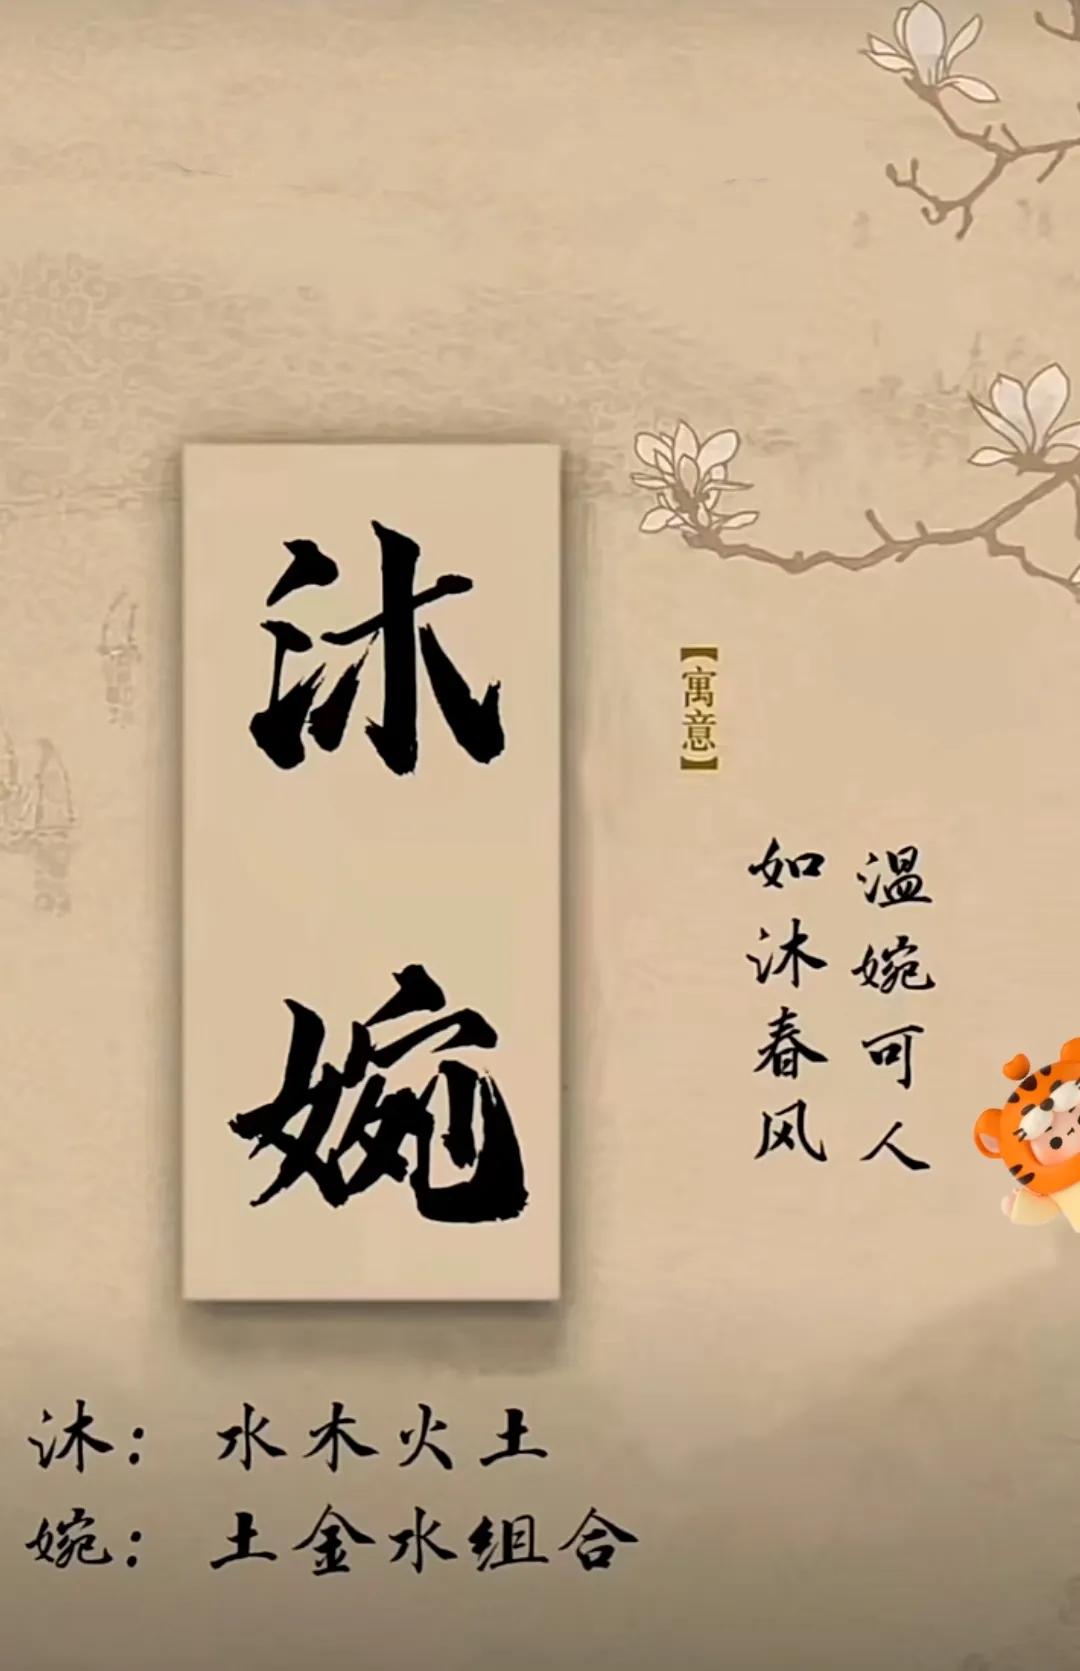 沐婉
【寓意】
温婉可人
如沐春风
沐：水木火土
婉：土金水组合